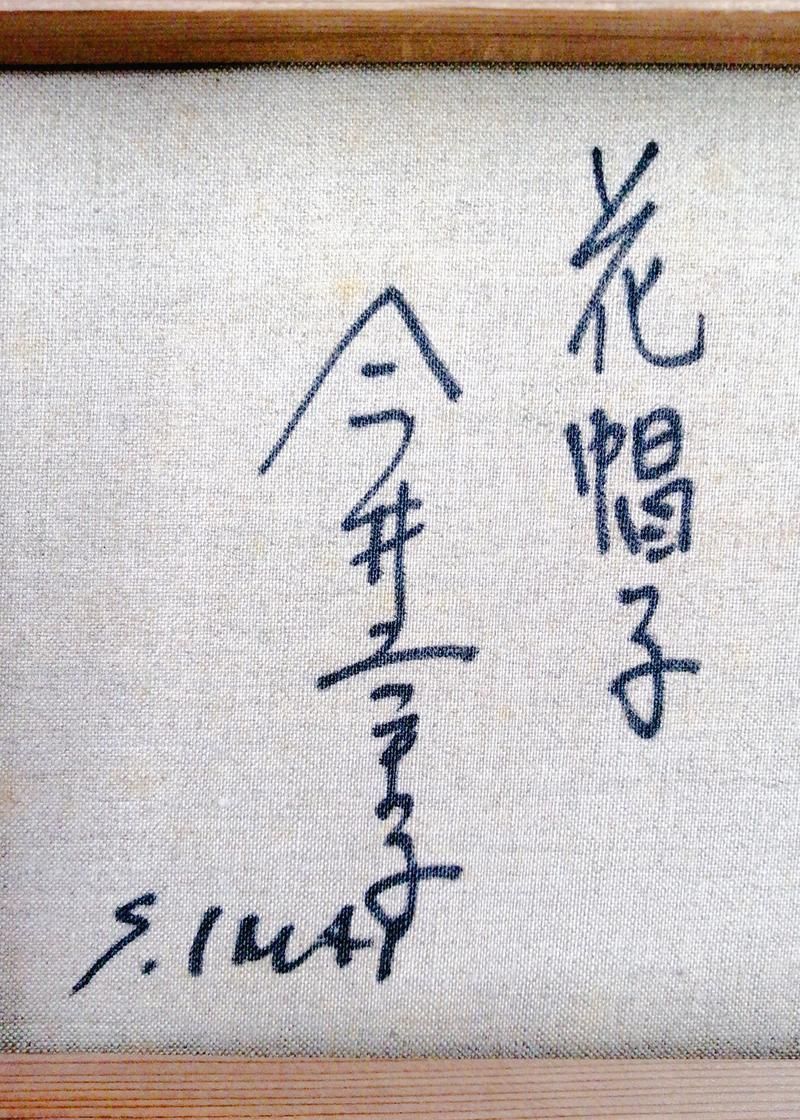 花帽子
今井幸子
S. IMAI